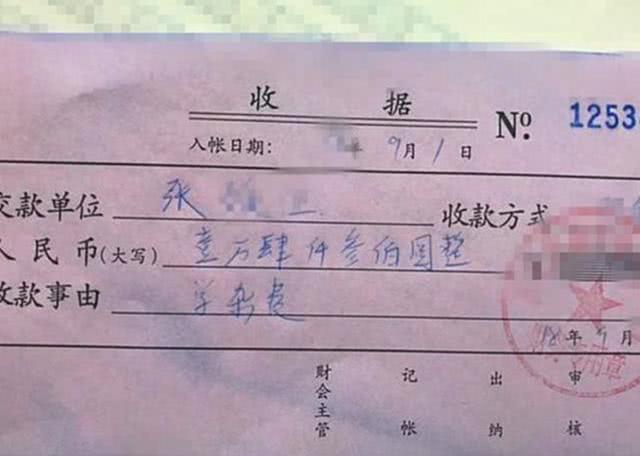 收 据
No. 1253
入帐日期： 年 9月1日
交款单位 张 收款方式
人民币(大写) 壹万肆仟叁佰圆整
收款事由 学杂费
18年9月
财会主管 记帐 出纳 审核